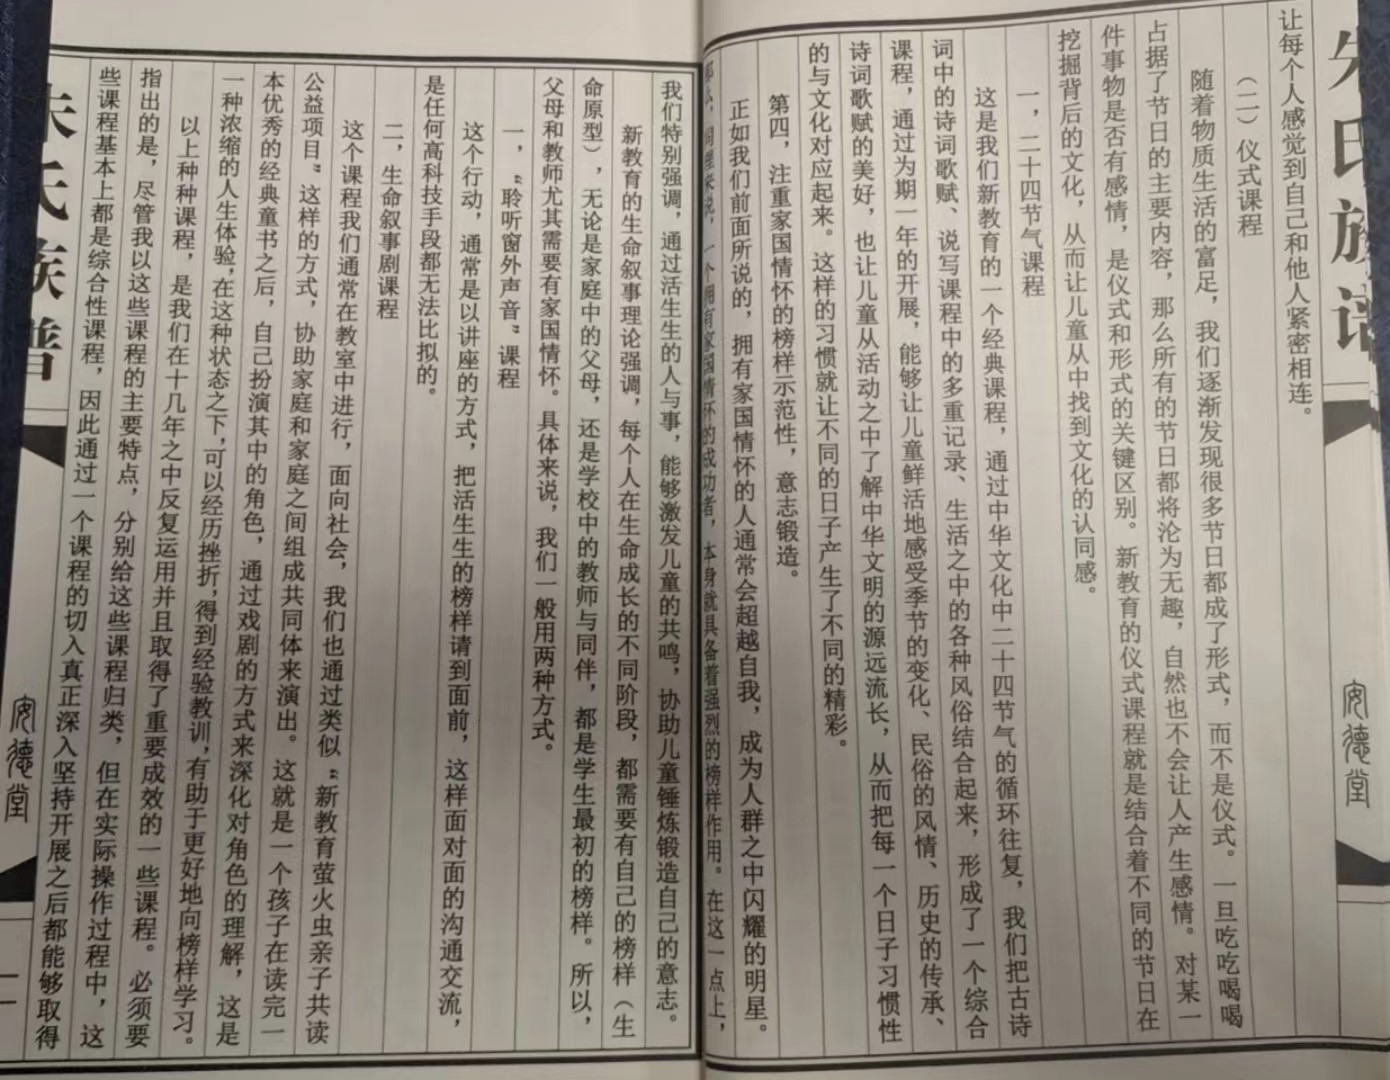 朱氏族谱
安德堂
让每个人感觉到自己和他人紧密相连。
（二）仪式课程
随着物质生活的富足，我们逐渐发现很多节日都成了形式，而不是仪式。一旦吃吃喝喝
占据了节日的主要内容，那么所有的节日都将沦为无趣，自然也不会让人产生感情。对某一
件事物是否有感情，是仪式和形式的关键区别。新教育的仪式课程就是结合着不同的节日在
挖掘背后的文化，从而让儿童从中找到文化的认同感。
一，二十四节气课程
这是我们新教育的一个经典课程，通过中华文化中二十四节气的循环往复，我们把古诗
词中的诗词歌赋、说写课程中的多重记录、生活之中的各种风俗结合起来，形成了一个综合
课程，通过为期一年的开展，能够让儿童鲜活地感受季节的变化、民俗的风情、历史的传承、
诗词歌赋的美好，也让儿童从活动之中了解中华文明的源远流长，从而把每一个日子习惯性
的与文化对应起来。这样的习惯就让不同的日子产生了不同的精彩。
第四，注重家国情怀的榜样示范性，意志锻造。
正如我们前面所说的，拥有家国情怀的人通常会超越自我，成为人群之中闪耀的明星。
那么，同理来说，一个拥有家国情怀的成功者，本身就具备着强烈的榜样作用。在这一点上，
我们特别强调，通过活生生的人与事，能够激发儿童的共鸣，协助儿童锤炼锻造自己的意志。
新教育的生命叙事理论强调，每个人在生命成长的不同阶段，都需要有自己的榜样（生
命原型），无论是家庭中的父母，还是学校中的教师与同伴，都是学生最初的榜样。所以，
父母和教师尤其需要有家国情怀。具体来说，我们一般用两种方式。
一，“聆听窗外声音”课程
这个行动，通常是以讲座的方式，把活生生的榜样请到面前，这样面对面的沟通交流，
是任何高科技手段都无法比拟的。
二，生命叙事剧课程
这个课程我们通常在教室中进行，面向社会，我们也通过类似“新教育萤火虫亲子共读
公益项目”这样的方式，协助家庭和家庭之间组成共同体来演出。这就是一个孩子在读完一
本优秀的经典童书之后，自己扮演其中的角色，通过戏剧的方式来深化对角色的理解，这是
一种浓缩的人生体验，在这种状态之下，可以经历挫折，得到经验教训，有助于更好地向榜样学习。
以上种种课程，是我们在十几年之中反复运用并且取得了重要成效的一些课程。必须要
指出的是，尽管我以这些课程的主要特点，分别给这些课程归类，但在实际操作过程中，这
些课程基本上都是综合性课程，因此通过一个课程的切入真正深入坚持开展之后都能够取得
朱氏族谱
安德堂